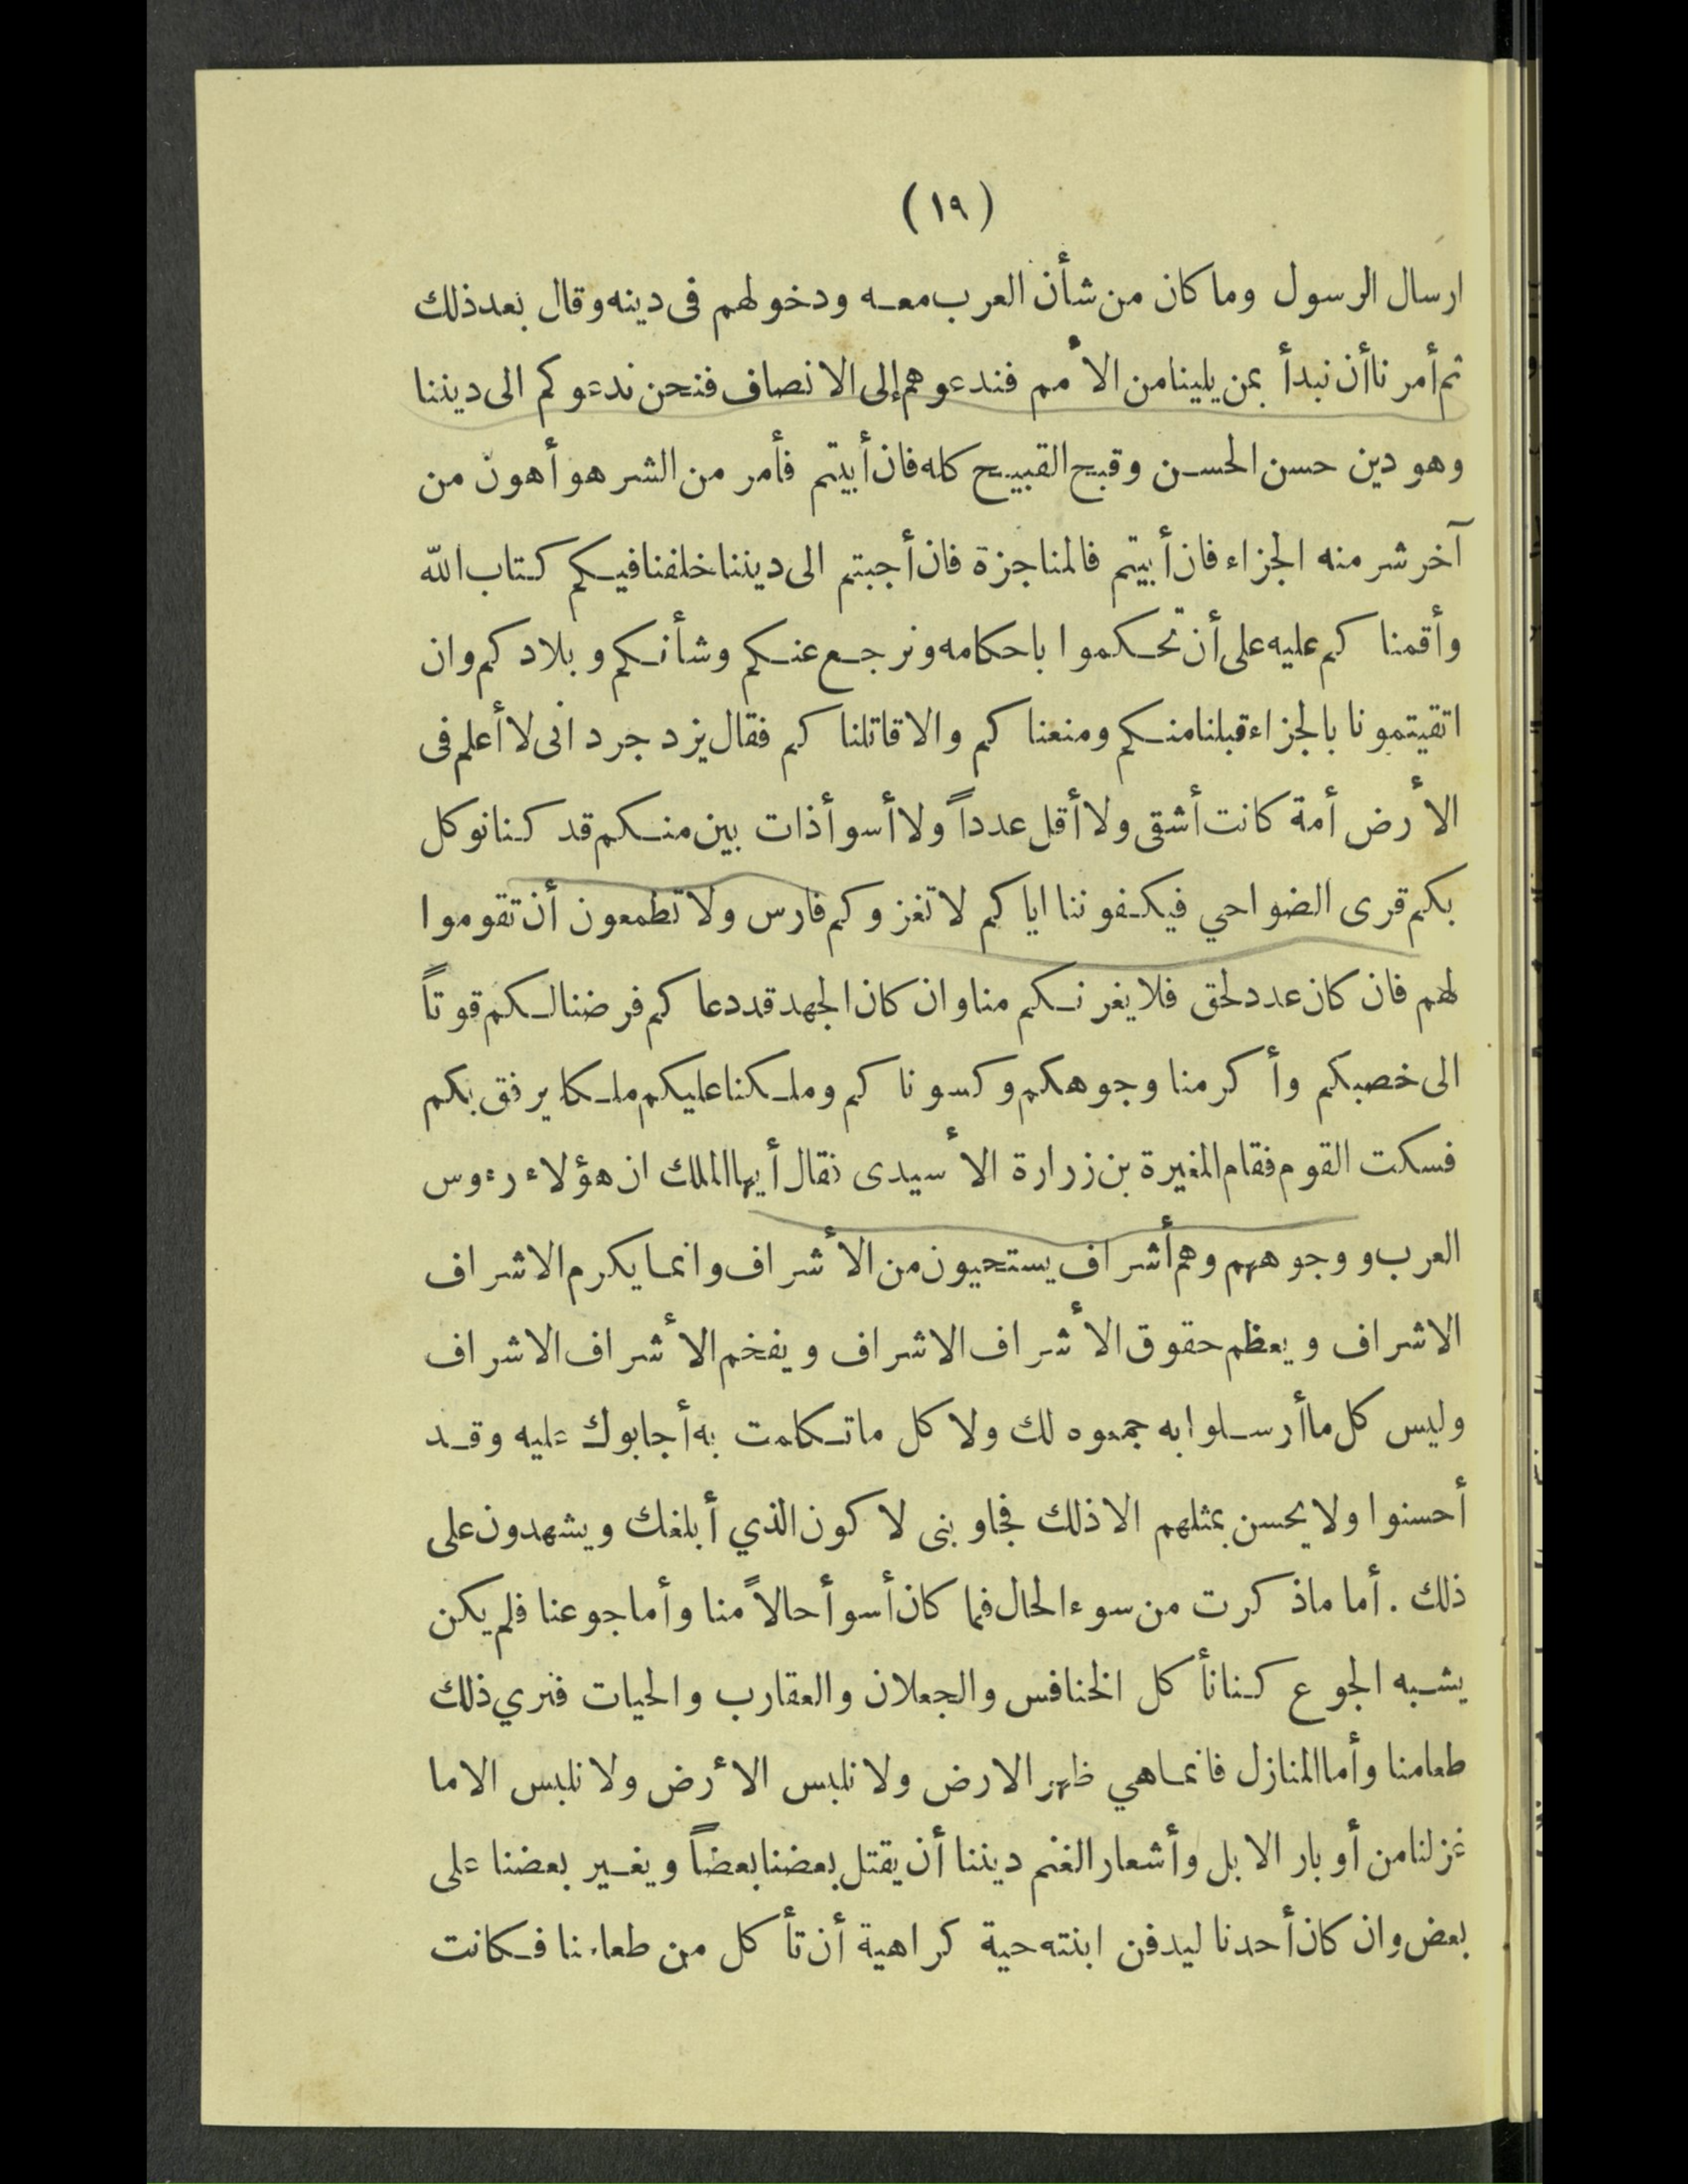 (١٩)
ارسال الرسول وما كان من شأن العرب معه ودخولهم فى دينه وقال بعد ذلك
ثم أمرنا أن نبدأ بمن يلينا من الأمم فندعوهم إلى الانصاف فنحن ندعوكم الى ديننا
وهو دين حسن الحسن وقبح القبيح كله فان أبيتم فأمر من الشر هو أهون من
آخر شر منه الجزاء فان أبيتم فالمناجزة فان أجبتم الى ديننا خلفنا فيكم كتاب الله
وأقمنا كم عليه على أن تحكموا باحكامه ونرجع عنكم وشأنكم وبلادكم وان
اتقيتمونا بالجزاء قبلنا منكم ومنعناكم والا قاتلناكم فقال يزد جرد انى لا أعلم فى
الأرض أمة كانت أشقى ولا أقل عدداً ولا أسوأ ذات بين منكم قد كنا نوكل
بكم قرى الضواحي فيكفوننا اياكم لا تغزوكم فارس ولا تطمعون أن تقوموا
لهم فان كان عدد لحق فلا يغرنكم منا وان كان الجهد قد دعاكم فرضنا لكم قوتاً
الى خصبكم وأكرمنا وجوهكم وكسوناكم وملكنا عليكم ملكا يرفق بكم
فسكت القوم فقام المغيرة بن زرارة الأسيدى فقال أيها الملك ان هؤلاء رءوس
العرب ووجوههم وهم أشراف يستحيون من الأشراف وانما يكرم الاشراف
الاشراف ويعظم حقوق الأشراف الاشراف ويفخم الأشراف الاشراف
وليس كل ما أرسلوا به جمعوه لك ولا كل ما تكلمت به أجابوك عليه وقد
أحسنوا ولا يحسن بمثلهم الا ذلك فجاوبنى لا كون الذي أبلغك ويشهدون على
ذلك . أما ما ذكرت من سوء الحال فما كان أسوأ حالاً منا وأما جوعنا فلم يكن
يشبه الجوع كنا نأكل الخنافس والجعلان والعقارب والحيات فنري ذلك
طعامنا وأما المنازل فانما هي ظهر الارض ولا نلبس الأرض ولا نلبس الا ما
غزلنا من أوبار الابل وأشعار الغنم ديننا أن يقتل بعضنا بعضاً ويغير بعضنا على
بعض وان كان أحدنا ليدفن ابنته حية كراهية أن تأكل من طعامنا فكانت